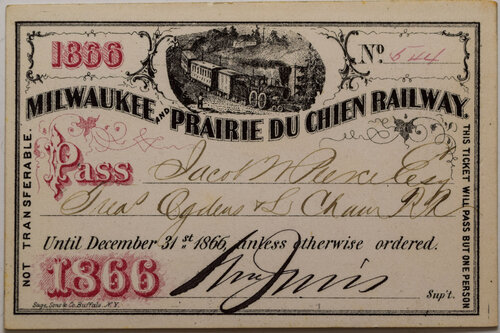 1866
No. 644
MILWAUKEE AND PRAIRIE DU CHIEN RAILWAY.
Pass Jacob M Pierce Esq
Treas Ogdens & L Cham RR
Until December 31st 1866, unless otherwise ordered.
1866
Sup't.
Sage, Sons & Co. Buffalo. N.Y.
NOT TRANSFERABLE.
THIS TICKET WILL PASS BUT ONE PERSON